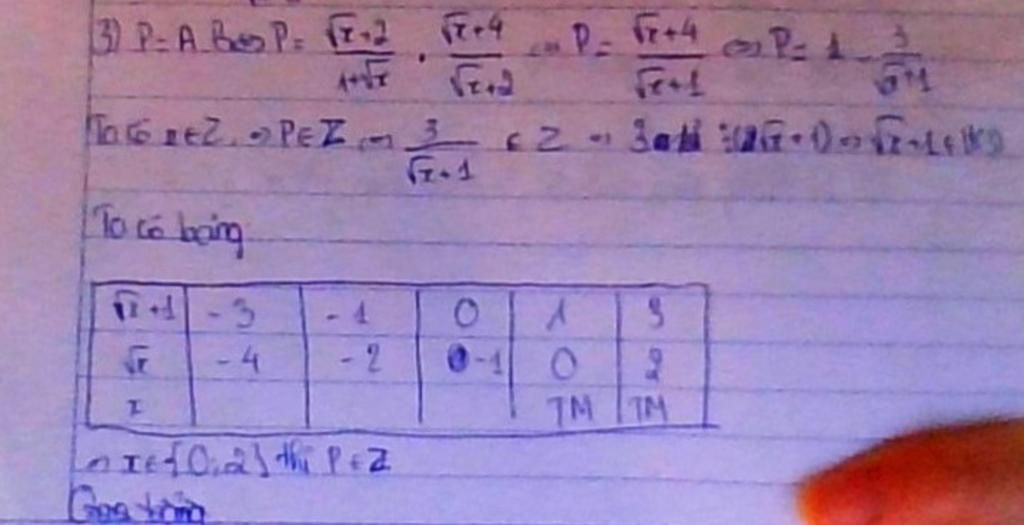 3) P = A.B <=> P = (√x+2)/(1+√x) . (√x+4)/(√x+2) <=> P = (√x+4)/(√x+1) <=> P = 1 - 3/(√x+1)
Ta có x∈Z => P∈Z <=> 3/(√x+1) ∈ Z => 3 ⋮ (√x+1) => √x+1 ∈
Ta có bảng
√x+1 | -3 | -1 | 0 | 1 | 3
√x | -4 | -2 | -1 | 0 | 2
x | | | | TM | TM
=> x∈{0;2} thì P∈Z